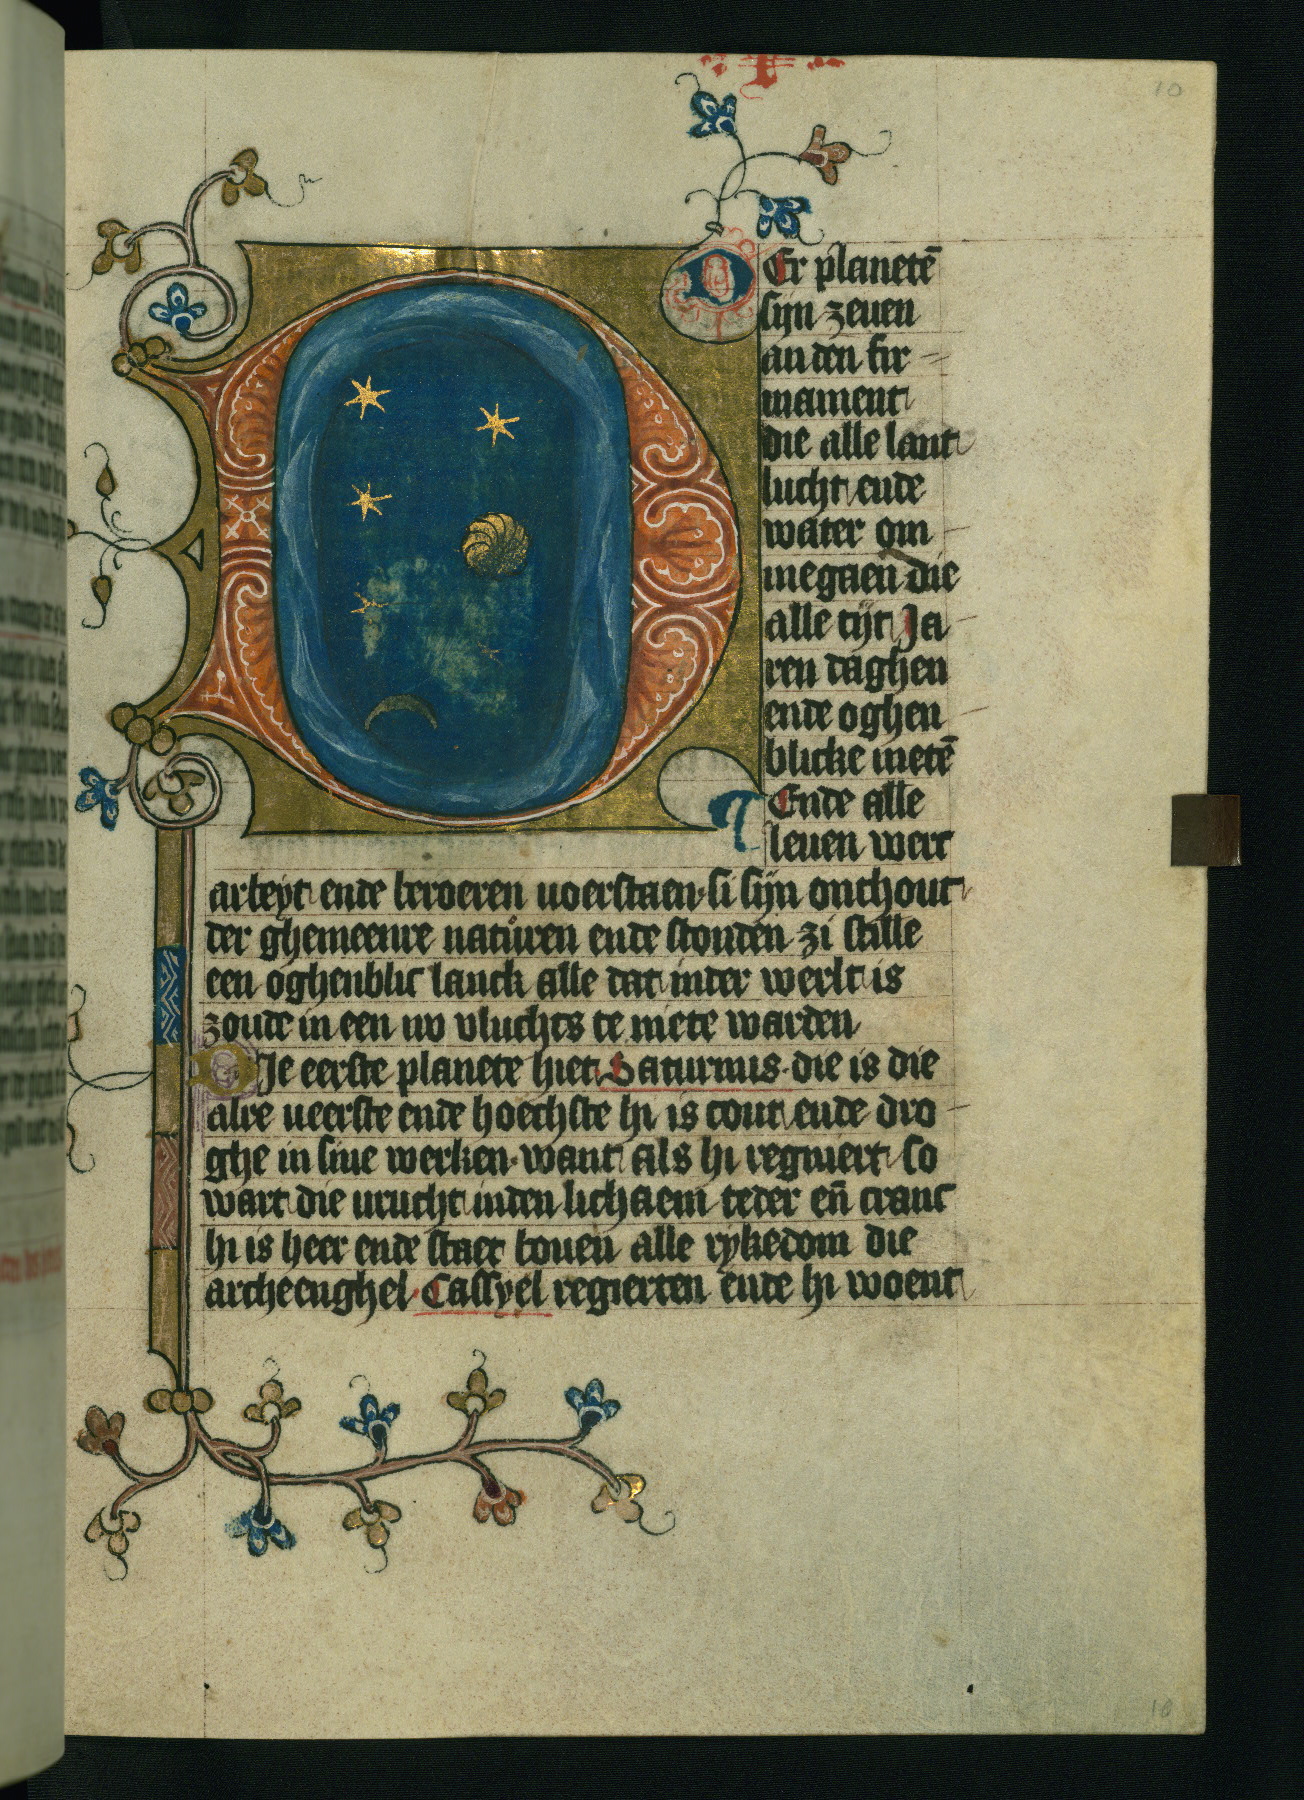 10
DEr planetē
sijn zeuen
an den fir
mament
die alle lant
lucht ende
water om
megaen die
alle tijt Ja
ren daghen
ende oghen
blicke metē
Ende alle
leuen wert
arbeyt ende beroeren voerstaen si sijn onthout
der ghemeenre natůren ende stonden zi stille
een oghenblic lanck alle dat inder werlt is
zoude in een uv vluchts te niete warden
DJe eerste planete hiet Saturnus die is die
alre ueerste ende hoechste hi is cout ende dro
ghe in sine werken want als hi regniert so
wart die vrucht inden lichaem teder eñ cranc
hi is heer ende staet bouen alle rykedom die
archeenghel Cassyel regierten ende hi woent
10